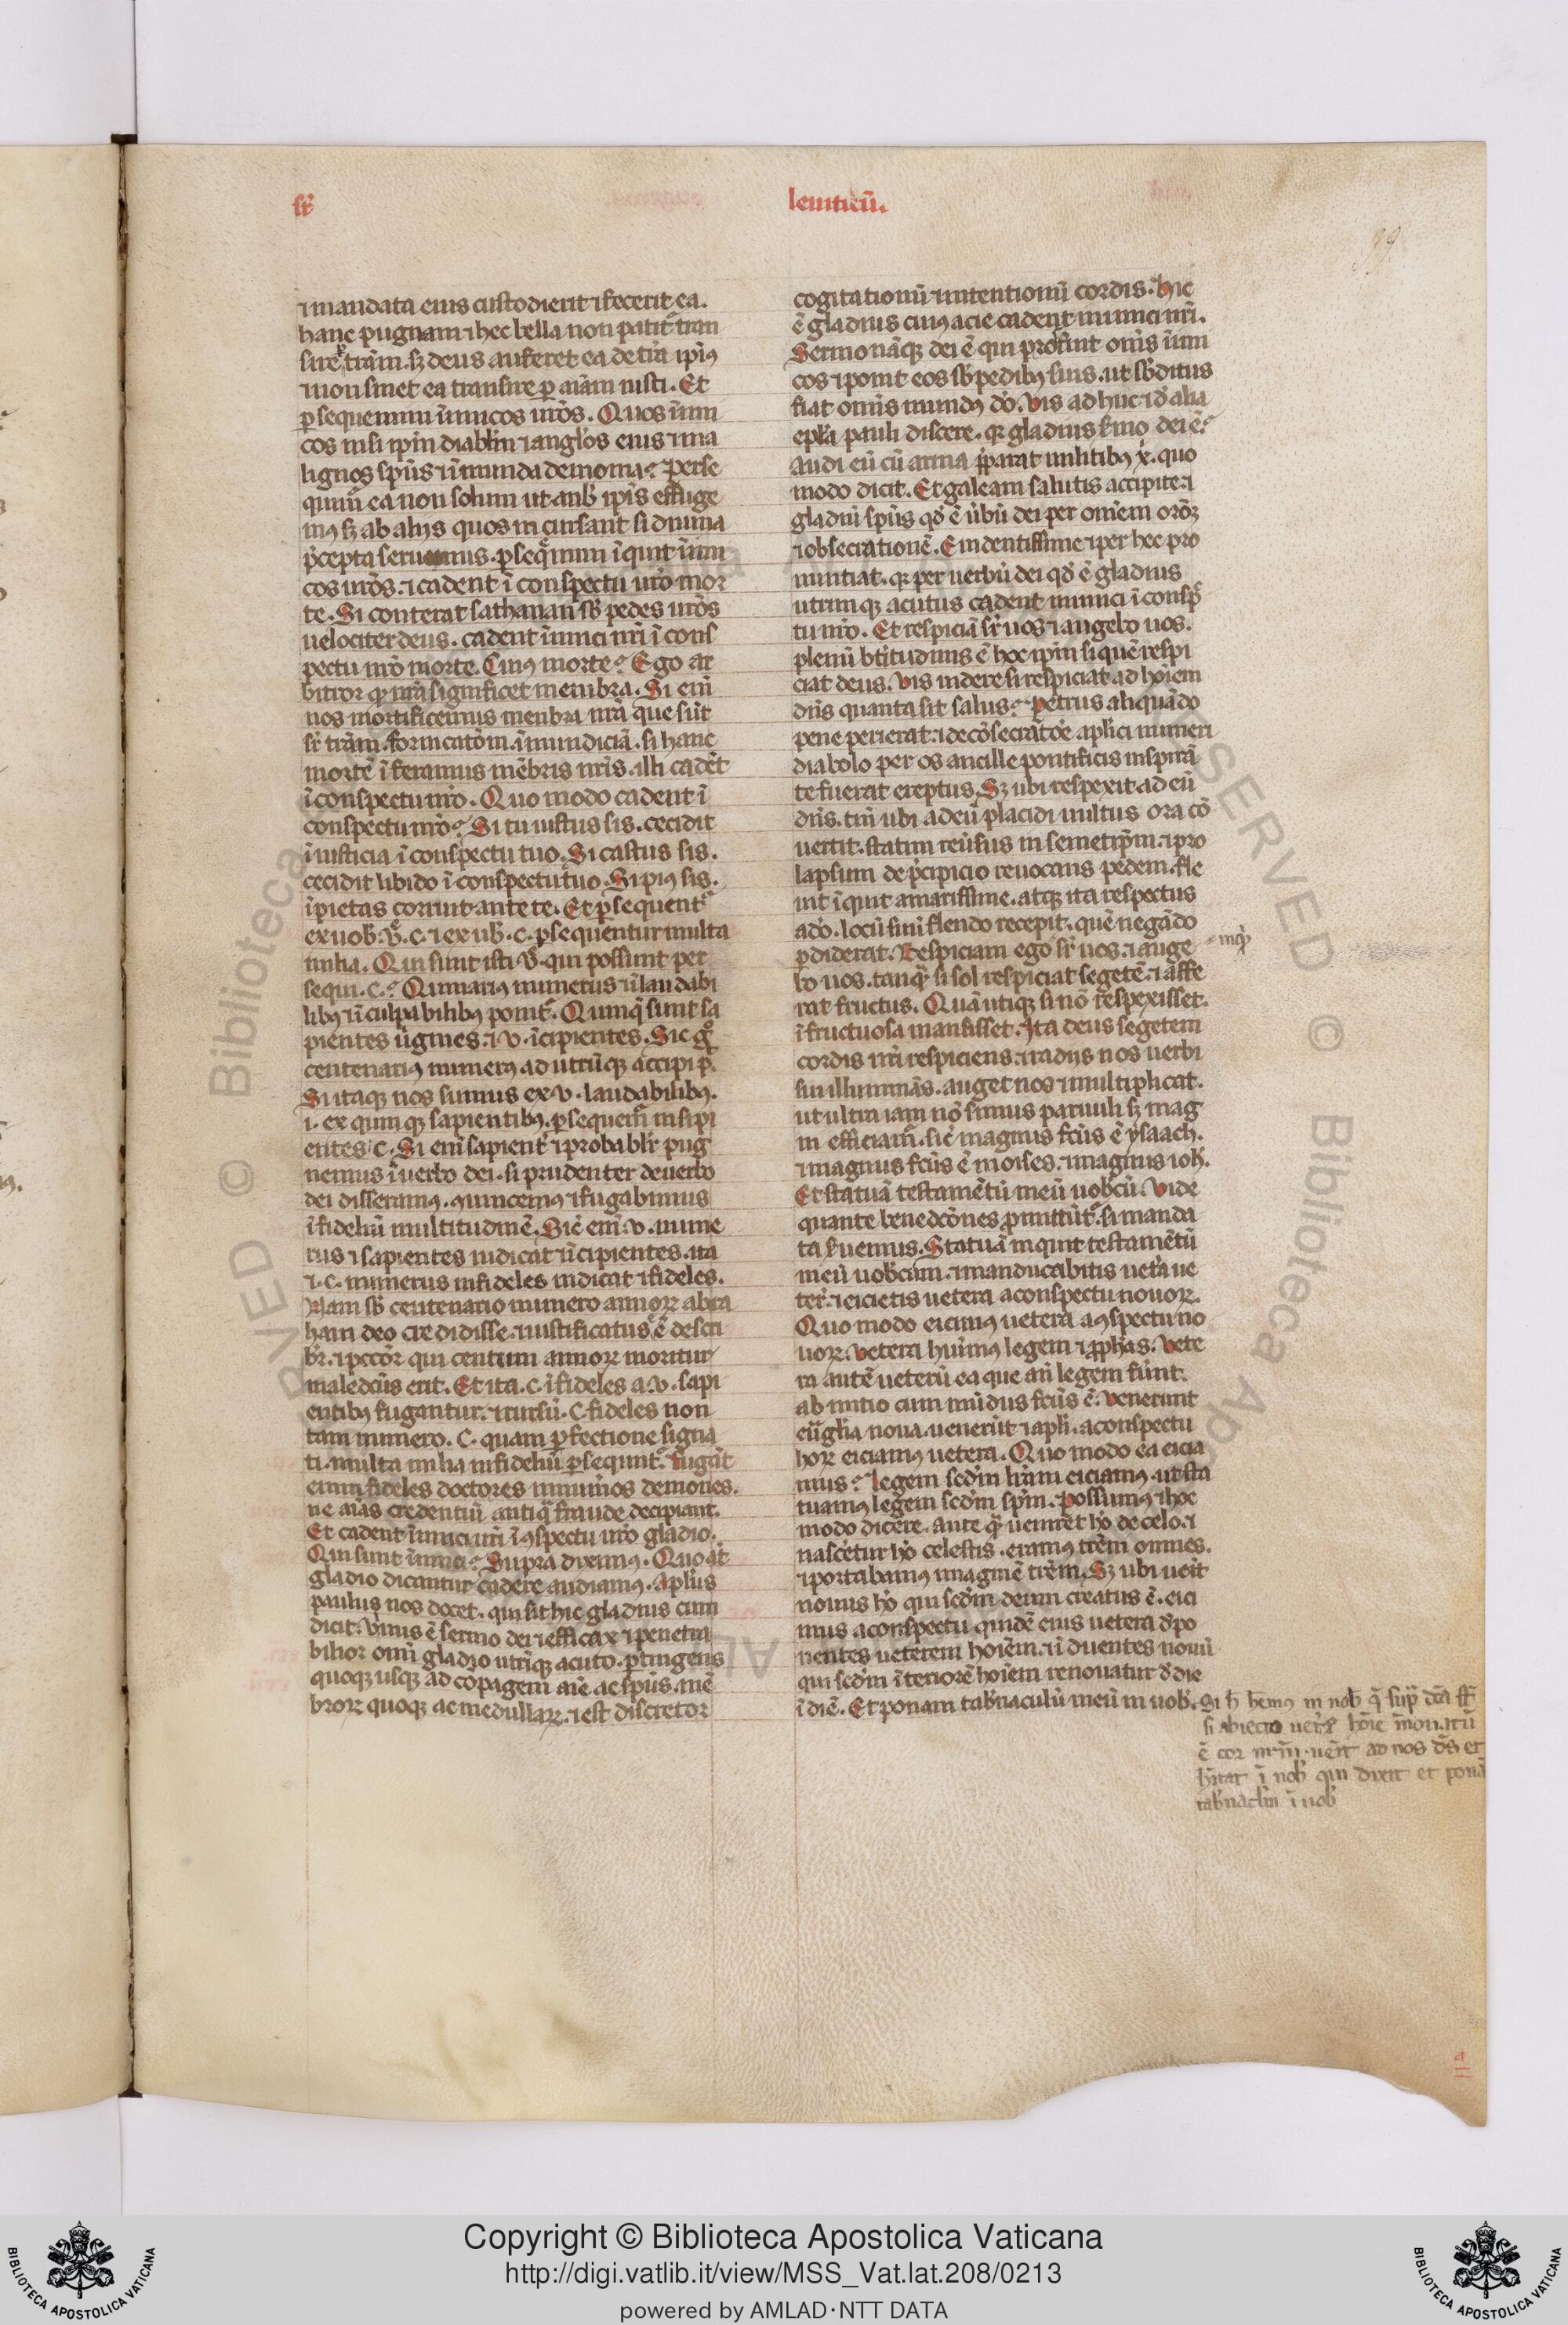 sr̄
leuiticū.
99
⁊ mandata eius custodierit ⁊ fecerit ea.
hanc pugnam ⁊ hec bella non patit᷑ tran
sire trām. sꝫ deus auferet ea de tr̄a ipiꝰ
⁊ non sinet ea transire ꝑ aīam iusti. Et
ꝑsequemini īimicos ur̄os. Quos īimi
cos nisi ipm̄ diabl̄m ⁊ angl̄os eius ⁊ ma
lignos spūs ⁊ īmunda demonia? Perse
quim̄ ea non solum ut a nob̄ ipīs effuge
mꝰ sꝫ ab alijs quos incursant si diuina
p̄cepta seruemus. ꝑseq̄mini īquit īimi
cos ur̄os. ⁊ cadent ī conspectu ur̄o mor
te. Si conterat sathanan sb̄ pedes ur̄os
uelociter deus. cadent īimici nr̄i ī cons
pectu nr̄o morte. Cuiꝰ morte? Ego ar
bitror qd̄ nr̄a significet membra. Si em̄
nos mortificemus menbra nr̄a que sūt
sr̄ trām. fornicatōm. īmundiciā. si hanc
mortē īferamus mēbris nr̄is. illi cadēt
ī conspectu nr̄o. Quo modo cadent ī
conspectu nr̄o? Si tu iustus sis. cecidit
īiusticia ī conspectu tuo. Si castus sis.
cecidit libido ī conspectu tuo. Si piꝰ sis.
īpietas corruit ante te. Et ꝑsequent᷑
ex uob̄. v̄. c. ⁊ ex ub̄. c. ꝑsequentur multa
milia. Qui sunt isti v̄. qui possunt per
sequi. c.? Quinariꝰ numerus ⁊ ī laudabi
libꝰ ⁊ ī culpabilibꝰ ponit᷑. Quinq̄ sunt sa
pientes uīgines. ⁊ v. īcipientes. Sic gͦ
centenariꝰ numerꝰ ad utrūqꝫ accipi p̄t.
Si itaqꝫ nos sumus ex v. laudabilibꝰ.
i. ex quinqꝫ sapientibꝰ. ꝑsequem̄ insipi
entes C. Si enī sapient᷑ ⁊ probabil̄r pug
nemus ī uerbo dei. si prudenter de uerbo
dei disseramꝰ. ꝯuincemꝰ ⁊ fugabimus
īfideliū multitudinē. Sic em̄ v. nume
rus ⁊ sapientes iudicat ⁊ īcipientes. ita
⁊ .c. numerus infideles indicat ⁊ fideles.
Nam sb̄ centenario numero annoꝝ abra
ham deo credidisse. ⁊ iustificatus ē descri
b̄r. ⁊ pccōr qui centum annoꝝ moritur
maledc̄us erit. Et ita .c. īfideles a .v. sapi
entibꝰ fugantur. ⁊ rursū. C. fideles non
tam numero. C. quam ꝑfectione signa
ti. multa milia infideliū ꝑsequnt᷑. Fugāt
enim fideles doctores innumōs demones.
ne aīas credentiū antiq̄ fraude decipiant.
Et cadent īimici nr̄i ī ꝯspectu nr̄o gladio.
Qui sunt īimici? Supra diximꝰ. Quo āt
gladio dicantur cadere audiamꝰ. Apl̄us
paulus nos docet. qui sit hic gladius cum
dicit. Viuus ē sermo dei ⁊ efficax ⁊ penetra
bilior omī gladio utrīqꝫ acuto. ꝑtingens
quoqꝫ usqꝫ ad copagem aīe ac spūs. mē
broꝝ quoqꝫ ac medullaꝝ. ⁊ est discretor
cogitationū ⁊ intentionū cordis. Hic
ē gladius cuiꝰ acie cadent inimici nr̄i.
Sermo nāqꝫ dei ē qui prosternit om̄s īimi
cos ⁊ ponit eos sb̄ pedibꝰ suis. ut sb̄ditus
fiat om̄is mundꝰ dō. Vis adhuc ⁊ d̄ alia
epl̄a pauli discere. qr gladius s̄mo dei ē?
Audi eū cū arma p̄parat militibꝰ x̄. quo
modo dicit. Et galeam salutis accipite. ⁊
gladiū spūs qd̄ ē ūbū dei per omēm orōꝫ
⁊ obsecrationē. Euidentissime ⁊ per hec pro
nuntiat. qr per uerbū dei qd̄ ē gladius
utrimqꝫ acutus cadent inimici ī consp̄c
tu nr̄o. Et respiciā sr̄ uos ⁊ augebo uos.
plenū bt̄itudinis ē hoc ipm̄ si quē respi
ciat deus. Vis uidere si respiciat ad hoīem
dn̄s quanta sit salus? Petrus aliquādo
pene perierat. ⁊ de cōsecratōe apl̄ici numeri
diabolo per os ancille pontificis inspirā
te fuerat ereptus. Sꝫ ubi respexit ad eū
dn̄s. tm̄ ubi ad eū placidi uultus ora cō
uertit. statim reuersus in semetip̄m. ⁊ pro
lapsum de p̄cipicio reuocans pedem. fle
uit īquit amarissime. atqꝫ ita respectus
a dō. locū suū flendo recepit. quē negādo
ꝑdiderat. Respiciam ego sr̄ uos. ⁊ auge
bo uos. tanqͣ si sol respiciat segetē. ⁊ affe
rat fructus. Quā utiqꝫ si nō respexisset.
īfructuosa mansisset. Ita deus segetem
cordis nr̄i respiciens. ⁊ radijs nos uerbi
sui illuminās. auget nos ⁊ multiplicat.
ut ultra iam nō simus paruuli sꝫ mag
ni efficiam̄. sic magnus fcūs ē ysaach.
⁊ magnus fcūs ē moises. ⁊ magnus ioh̄.
Et statuā testamētū meū uob̄cū. Vide
quante benedcōnes ꝓmittūt᷑. si manda
ta s̄uemus. Statuā inquit testamētū
meū uob̄cum. ⁊ manducabitis uet̄a ue
ter̄. ⁊ eicietis uetera a conspectu nouoꝝ.
Quo modo eicimꝰ uetera a ꝯspectu no
uoꝝ. Vetera huīmꝰ legem ⁊ ꝓph̄as. Vete
ra autē ueterū ea que an̄ legem fūnt.
ab initio cum mūdus fcūs ē. Venerunt
eūglīa noua. uenerūt ⁊ apl̄i. a conspectu
hoꝝ eiciamꝰ uetera. Quo modo ea eicia
mus? Legem scd̄m lrām eiciamꝰ. ut sta
tuamꝰ legem scd̄m spm̄. Possumꝰ ⁊ hoc
modo dicere. ante qͣ ueniret hō de celo. ⁊
nascetur hō celestis. eramꝰ trēm omnes.
⁊ portabamꝰ imaginē trēm. Sꝫ ubi ueīt
nouus hō qui scd̄m deum creatus ē. eici
mus a conspectu quidē eius uetera d̄po
nentes ueterem hoīem. ⁊ īduentes nouū
qui scd̄m īteriorē hoīem renouatur d̄ die
ī diē. Et ponam tab̄naculū meū in uob̄.
Si h̄ hēmꝰ in nob̄ q̄ sup̄ dcā st̄
si abiecto uet̄i hoīe
ē cor nr̄m. uēit ad nos dn̄s et
hītat ī nob̄ qui dixit et ponā
tab̄nacl̄m ī uob̄
Copyright © Biblioteca Apostolica Vaticana
http://digi.vatlib.it/view/MSS_Vat.lat.208/0213
powered by AMLAD·NTT DATA
BIBLIOTECA APOSTOLICA VATICANA
BIBLIOTECA APOSTOLICA VATICANA